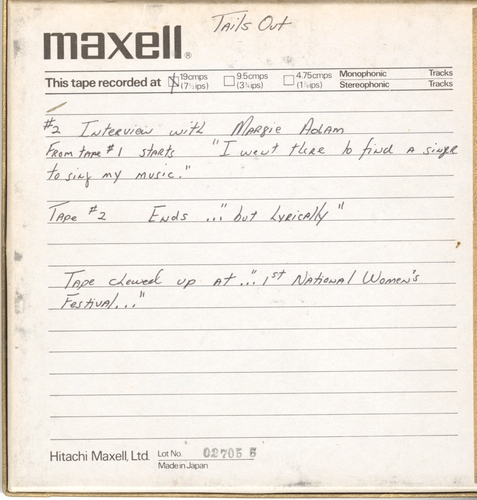 Tails Out
maxell®
This tape recorded at 19cmps (7½ips) 9.5cmps (3¾ips) 4.75cmps (1⅞ips) Monophonic Tracks
Stereophonic Tracks
#2 Interview with Margie Adam
From tape #1 starts "I went there to find a singer
to sing my music."
Tape #2 Ends ..."but lyrically"
Tape chewed up at ..."1st National Women's
Festival..."
Hitachi Maxell, Ltd. Lot No. 02705 5
Made in Japan